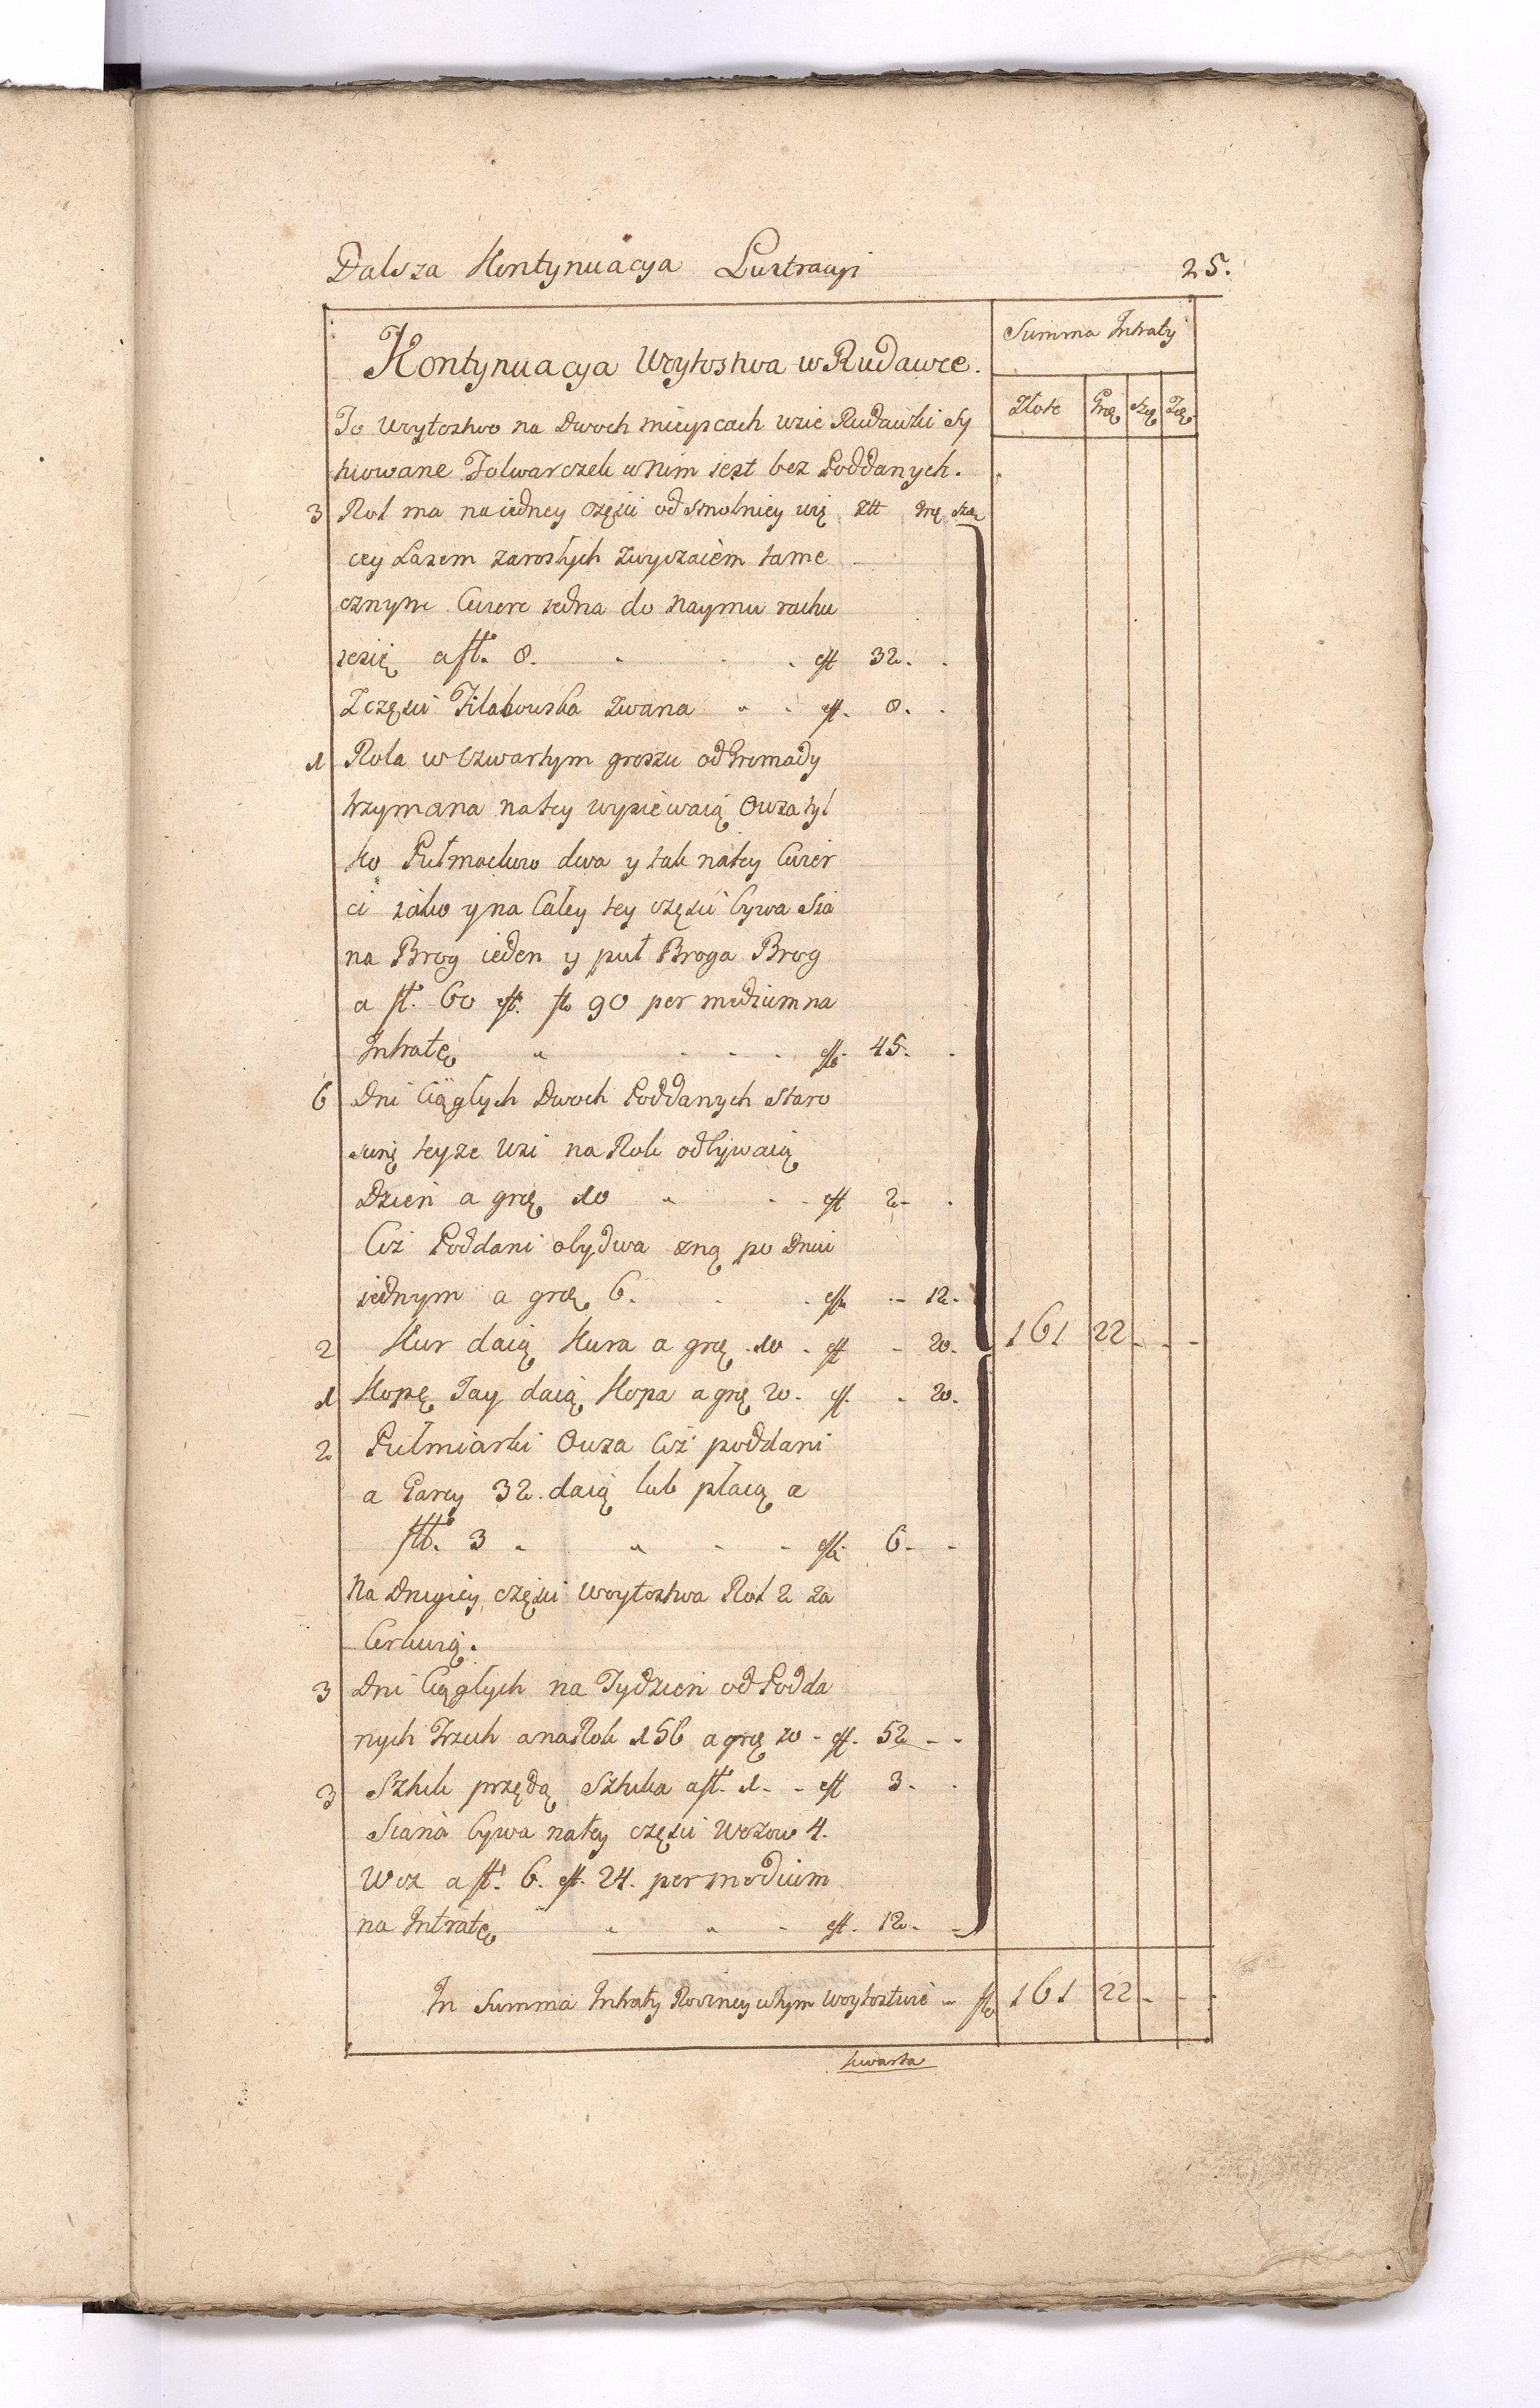 Dalsza Kontynuacya Lustracyi 25.
Kontynuacya Woytostwa w Rudawce.
Summa Intraty
Złote Grę Szę
To Woytostwo na Dwoch mieyscach wsie Rudawki Sy
tuowane Folwarczek w nim iest bez Poddanych.
3 Rol ma na iedney częsci od Smolnicy wię Złł Grę Szę
cey Lasem zarosłych zwyczaiem tame
cznym Cwierc iedna do Naymu rachu
iesię a fł. 8. eft 32.
Z częsci zwana eft. 8.
1 Rola w Czwartym groszu od Gromady
trzymana na tey wysiewaią Owsa tyl
ko Pułmackow dwa y tak na tey Cwier
ci iako y na Całey tey częsci bywa Sia
na Brog ieden y puł Broga Brog
a fł. 60 eft. fło 90 per medium na
Intratę eft. 45.
6 Dni Ciągłych Dwoch Poddanych Staro
scinę teyze Wsi na Rok odbywaią
Dzień a grę 10 eft 2
Ciż Poddani obydwa żną po Dniu
iednym a grę 6. eft. 12.
2 Kur daią Kura a grę 10 eft 20. 161 22
1 Kopę Jay daią Kopa a grę 20. eft. 20.
2 Pułmiarki Owsa Ciż poddani
a Garcy 32. daią lub płacą a
fłł. 3 eft. 6
Na Drugiey częsci Woytostwa Rol 2 za
Cerkwią.
3 Dni Ciągłych na Tydzień od Podda
nych Trzech a na Rok 156 a grę 10 eft. 52
3 Sztuk przędą Sztuka a fł. 1. eft 3.
Siana bywa na tey częsci Wozow 4.
Woz a fł. 6. eft. 24. per medium
na Intratę eft. 12.
In Summa Intraty Roczney w tym Woytostwie fło 161 22
kwarta